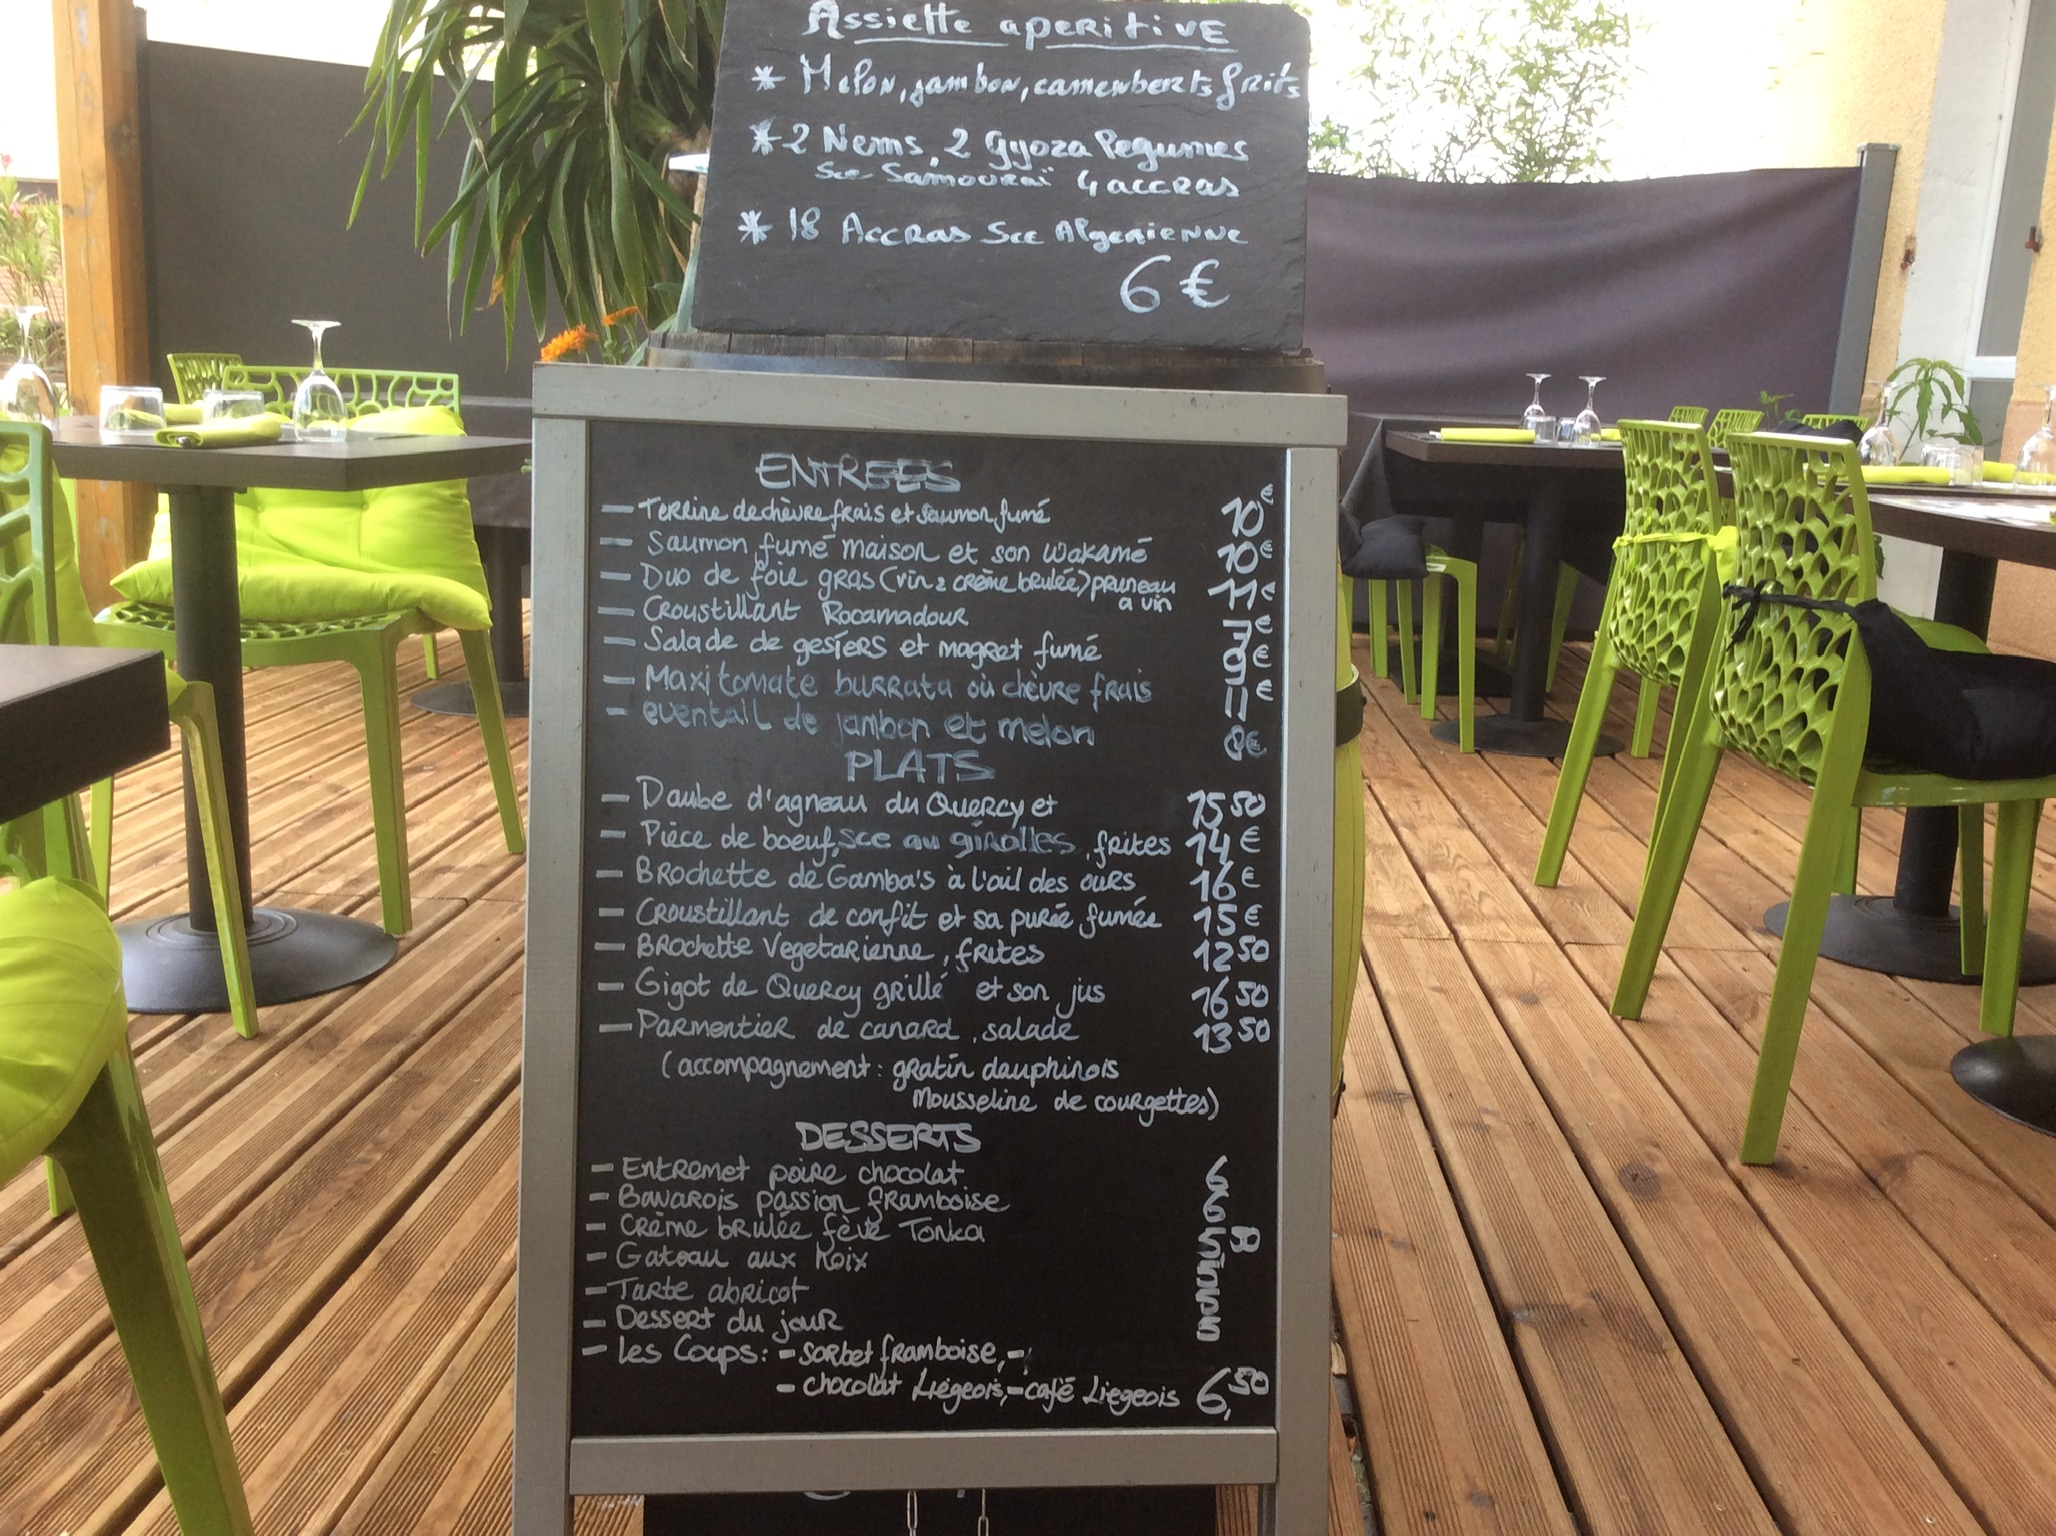 Assiette aperitive
* Melon, jambon, camemberts frits
* 2 Nems, 2 Gyoza legumes
Sce Samouraï 4 accras
* 18 Accras Sce Algerienne
6 €
ENTREES
— Terrine de chèvre frais et saumon fumé 10€
— Saumon fumé maison et son wakamé 10€
— Duo de foie gras (vin & crème brulée) pruneau 11€
a vin
— Croustillant Rocamadour 7€
— Salade de gesiers et magret fumé 9€
— Maxi tomate burrata où chèvre frais 11€
— eventail de jambon et melon 8€
PLATS
— Daube d'agneau du Quercy et 15 50
— Pièce de boeuf, sce au girolles, frites 14€
— Brochette de Gamba's à l'ail des ours 16€
— Croustillant de confit et sa purée fumée 15€
— Brochette Vegetarienne, frites 12 50
— Gigot de Quercy grillé et son jus 16 50
— Parmentier de canard, salade 13 50
(accompagnement: gratin dauphinois
Mousseline de courgettes)
DESSERTS
— Entremet poire chocolat 6
— Bavarois passion framboise 6
— Crème brulée fève Tonka 5
— Gateau aux noix 5
— Tarte abricot 5
— Dessert du jour 5
— Les Coups: - sorbet framboise, -
- chocolat Liégeois, - café Liegeois 6,50